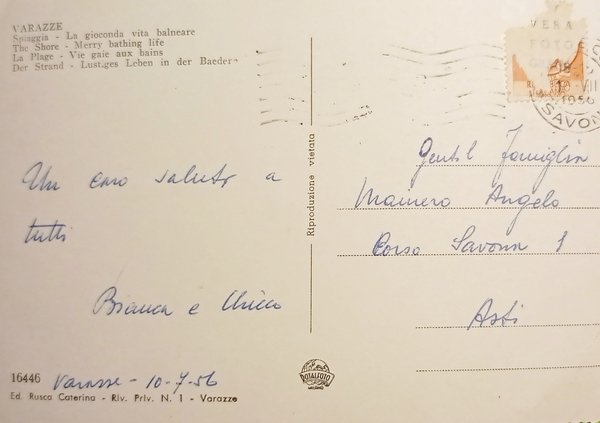 VARAZZE
Spiaggia - La gioconda vita balneare
The Shore - Merry bathing life
La Plage - Vie gaie aux bains
Der Strand - Lustiges Leben in der Baedern
VERA
FOTO
18
10 VII
1956
SAVONA
Un caro saluto a
tutti
Bianca e Chicco
Riproduzione vietata
Gentil Famiglia
Mainero Angelo
Corso Savona 1
Asti
16446
Varazze - 10-7-56
ROTALFOTO
MILANO
Ed. Rusca Caterina - Riv. Priv. N. 1 - Varazze